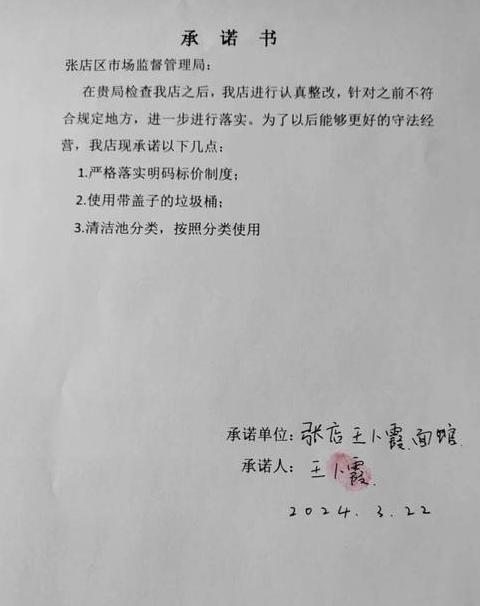 承诺书
张店区市场监督管理局：
在贵局检查我店之后，我店进行认真整改，针对之前不符
合规定地方，进一步进行落实。为了以后能够更好的守法经
营，我店现承诺以下几点：
1.严格落实明码标价制度；
2.使用带盖子的垃圾桶；
3.清洁池分类，按照分类使用
承诺单位：张店王卜霞面馆
承诺人：王卜霞
2024.3.22